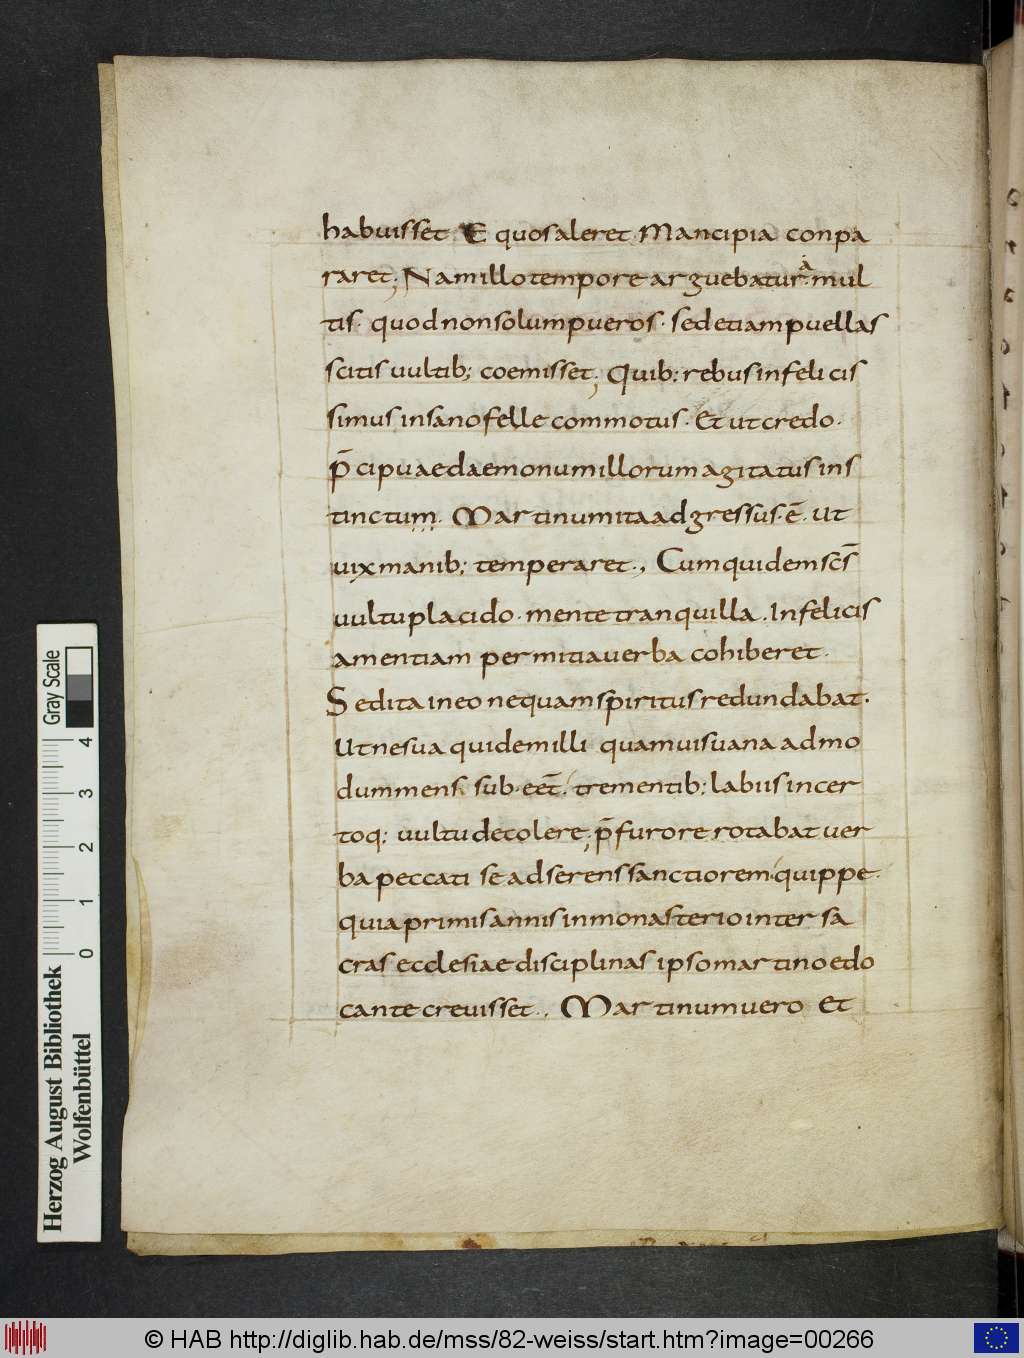 habuisset E quosaleret Mancipia conpa
raret; Namillotempore arguebatur a mul
tis· quodnonsolumpueros· sedetiampuellas
scitis uultib; coemisset; Quib; rebusinfelicis
simus insanofelle commotus· Et utcredo·
p̄cipuaedaemonumillorumagitatus ins
tinctum· Martinumitaadgressus·ē· Ut
uixmanib; temperaret., Cumquidemsc̄s
uultuplacido· mentetranquilla. Infelicis
amentiam permitiauerba cohiberet·
Sedita ineo nequamspiritusredundabat·
Utnesua quidemilli quamuisuana admo
dummens· sub·eēt· trementib; labiisincer
toq; uultudecolere; p̄furore rotabat uer
ba peccati se adserenssanctiorem·quippe·
quiaprimisannisinmonasteriointer sa
cras ecclesiaedisciplinas ipsomartinoedo
cante creuisset., Martinumuero Et
Gray Scale
0 1 2 3 4
Herzog August Bibliothek
Wolfenbüttel
© HAB http://diglib.hab.de/mss/82-weiss/start.htm?image=00266